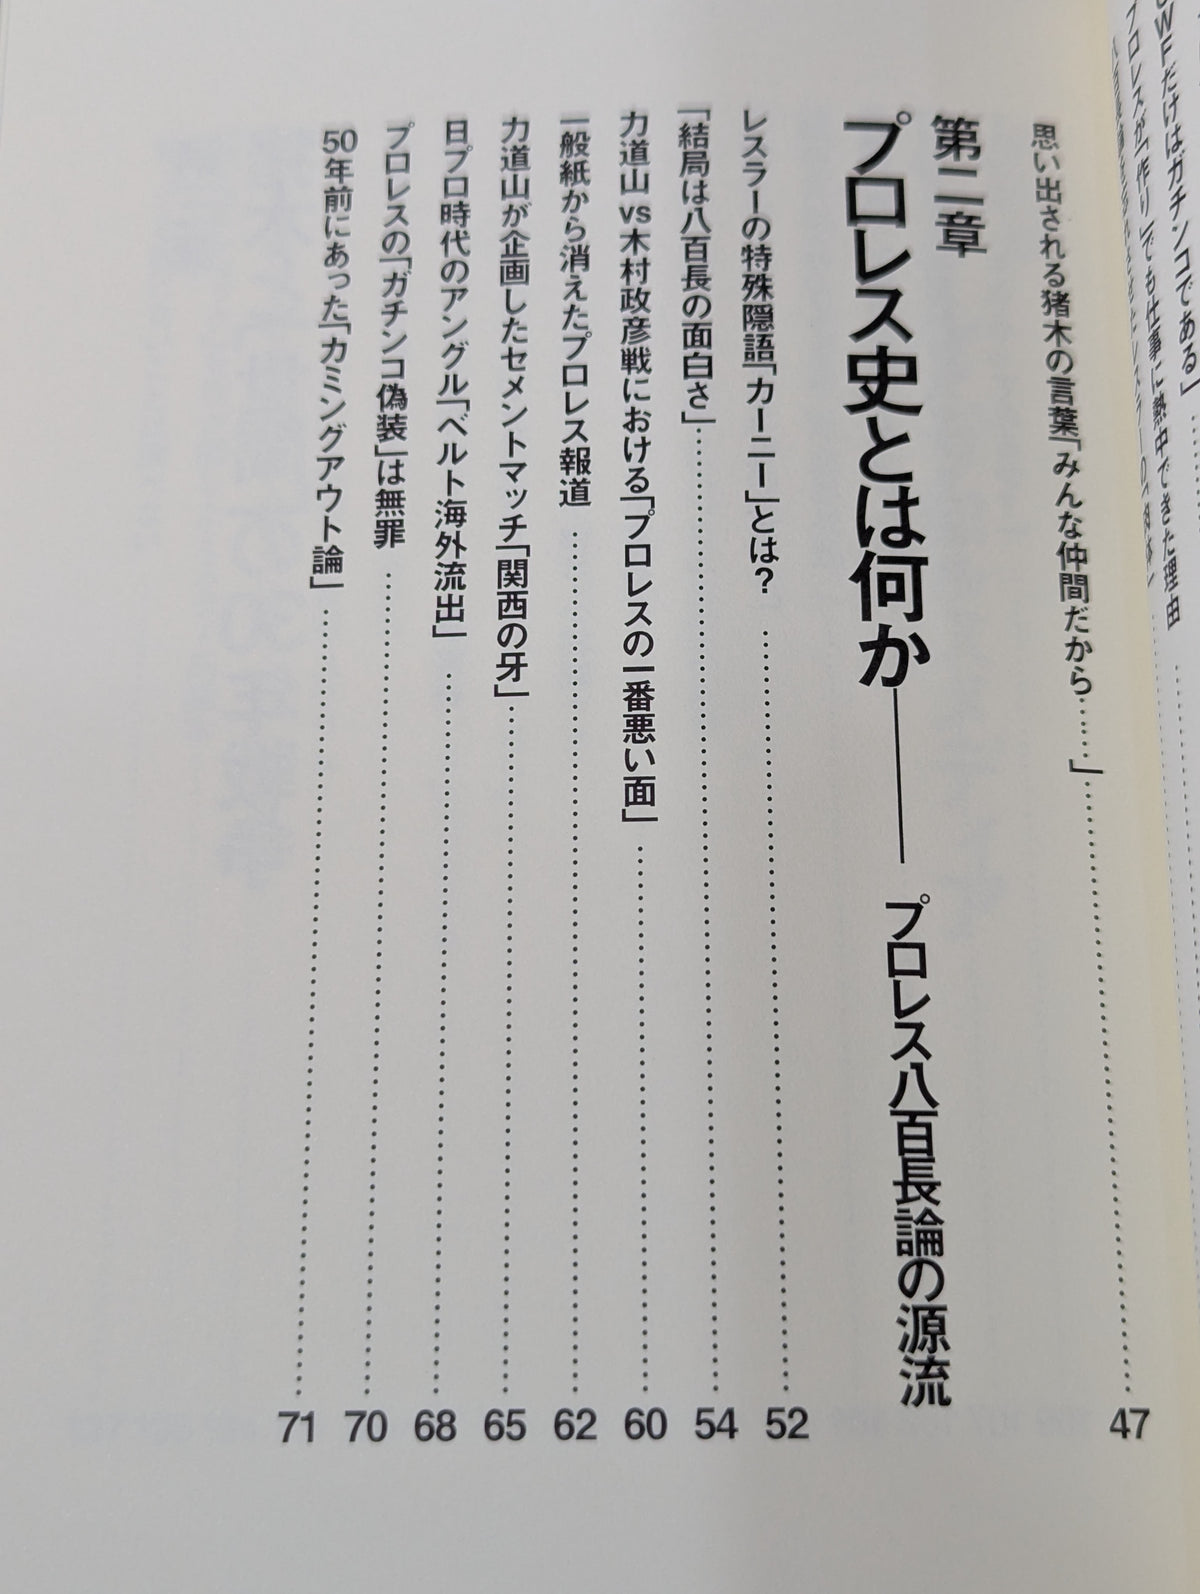 WFだけはガチンコである」
プロレスが「作り」でも仕事に熱中できた理由
思い出される猪木の言葉「みんな仲間だから……」 47
第二章
プロレス史とは何か―― プロレス八百長論の源流
レスラーの特殊隠語「カーニー」とは？ 52
「結局は八百長の面白さ」 54
力道山vs木村政彦戦における「プロレスの一番悪い面」 60
一般紙から消えたプロレス報道 62
力道山が企画したセメントマッチ「関西の牙」 65
日プロ時代のアングル「ベルト海外流出」 68
プロレスの「ガチンコ偽装」は無罪 70
50年前にあった「カミングアウト論」 71